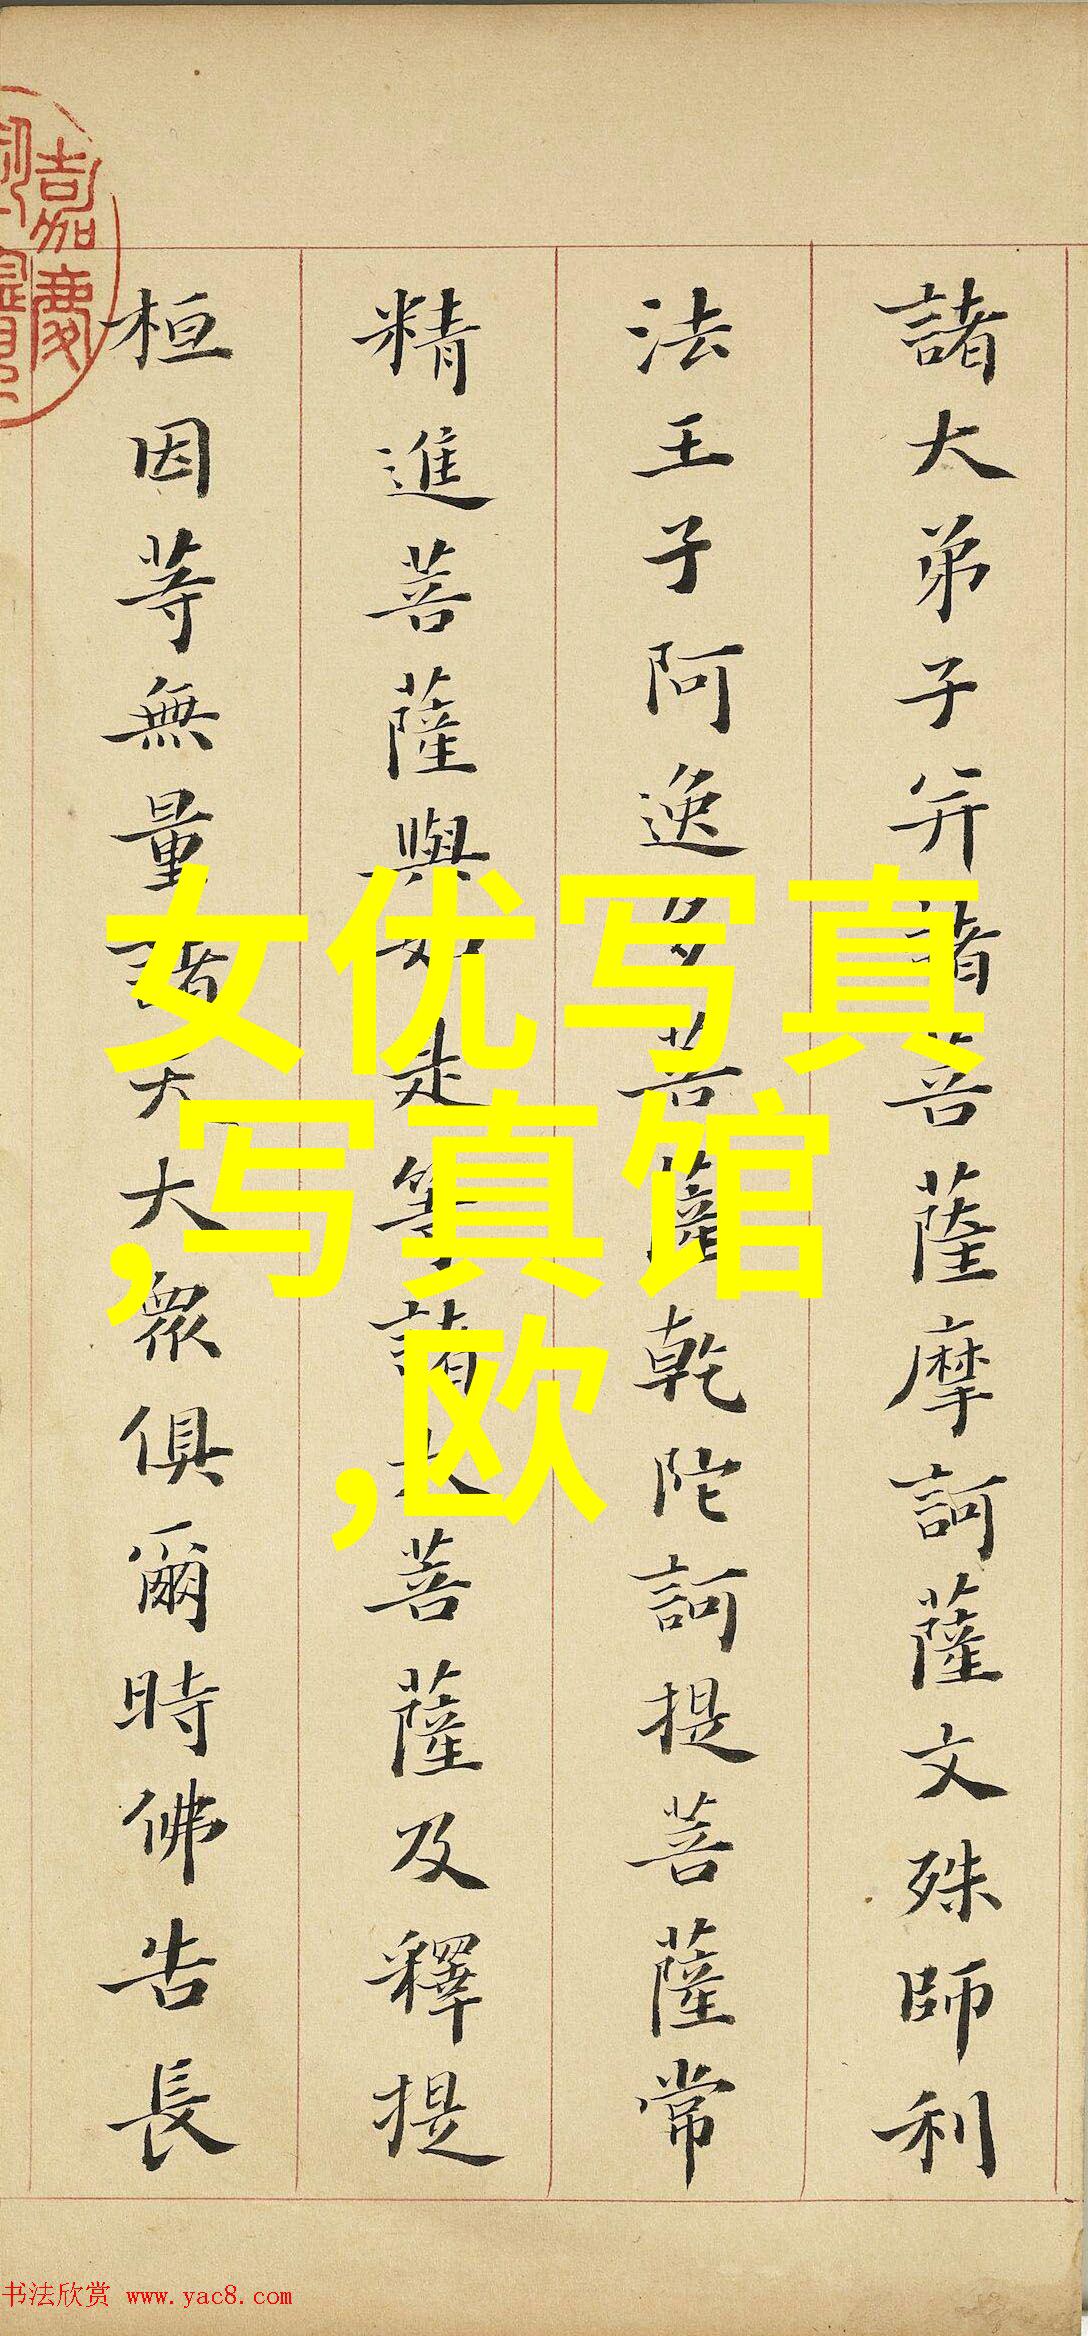 諸大弟子并諸菩薩摩訶薩文殊師利
法王子阿逸多菩薩乾陀訶提菩薩常
精進菩薩與如是等諸大菩薩及釋提
桓因等無量諸天大眾俱爾時佛告長
嘉慶
女优写真
,写真馆
,欧
书法欣赏 www.yac8.com